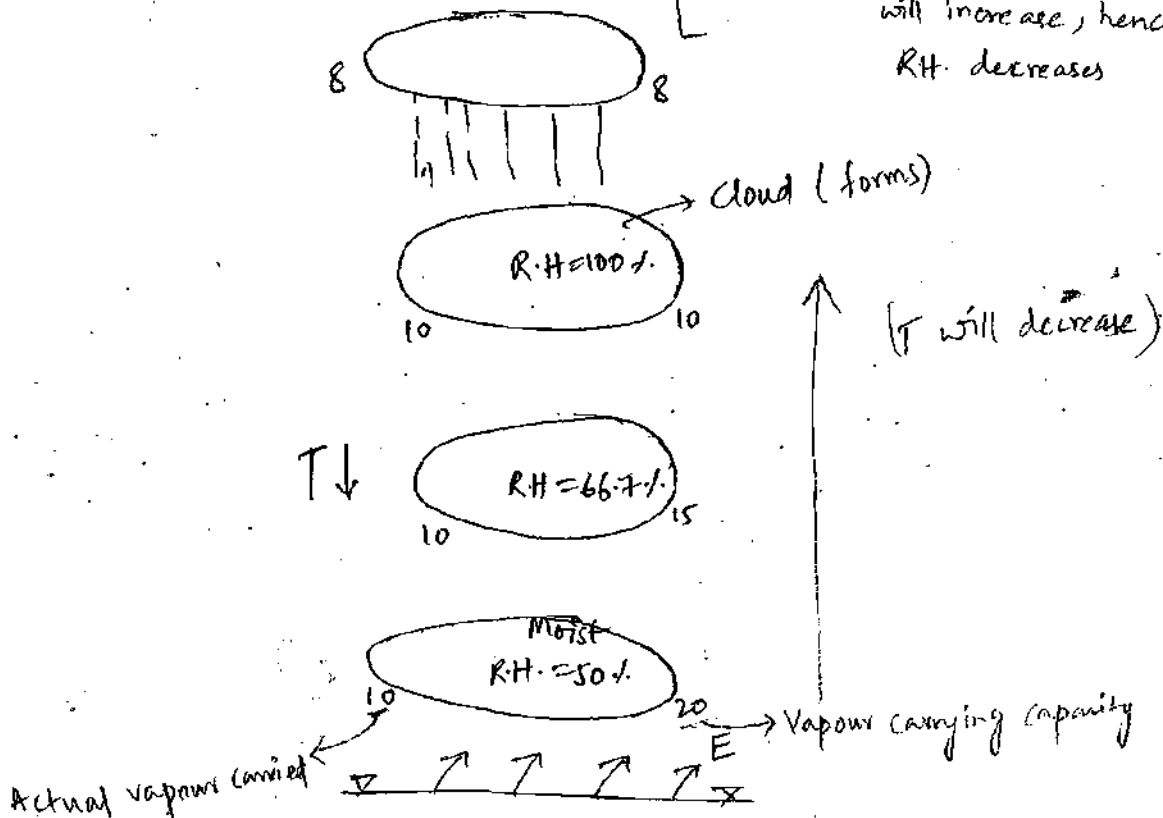 will increase, henc
RH. decreases
8
8
Cloud (forms)
R.H=100%
10
10
(T will decrease)
T↓
R.H=66.7%
10
15
Moist
R.H.=50%
10
20
Vapour carrying capacity
E
Actual vapour carried